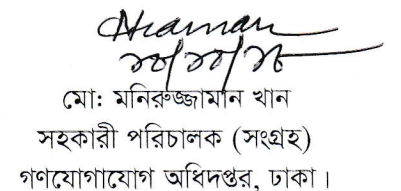 মো: মনিরুজ্জামান খান
সহকারী পরিচালক (সংগ্রহ)
গণযোগাযোগ অধিদপ্তর, ঢাকা।